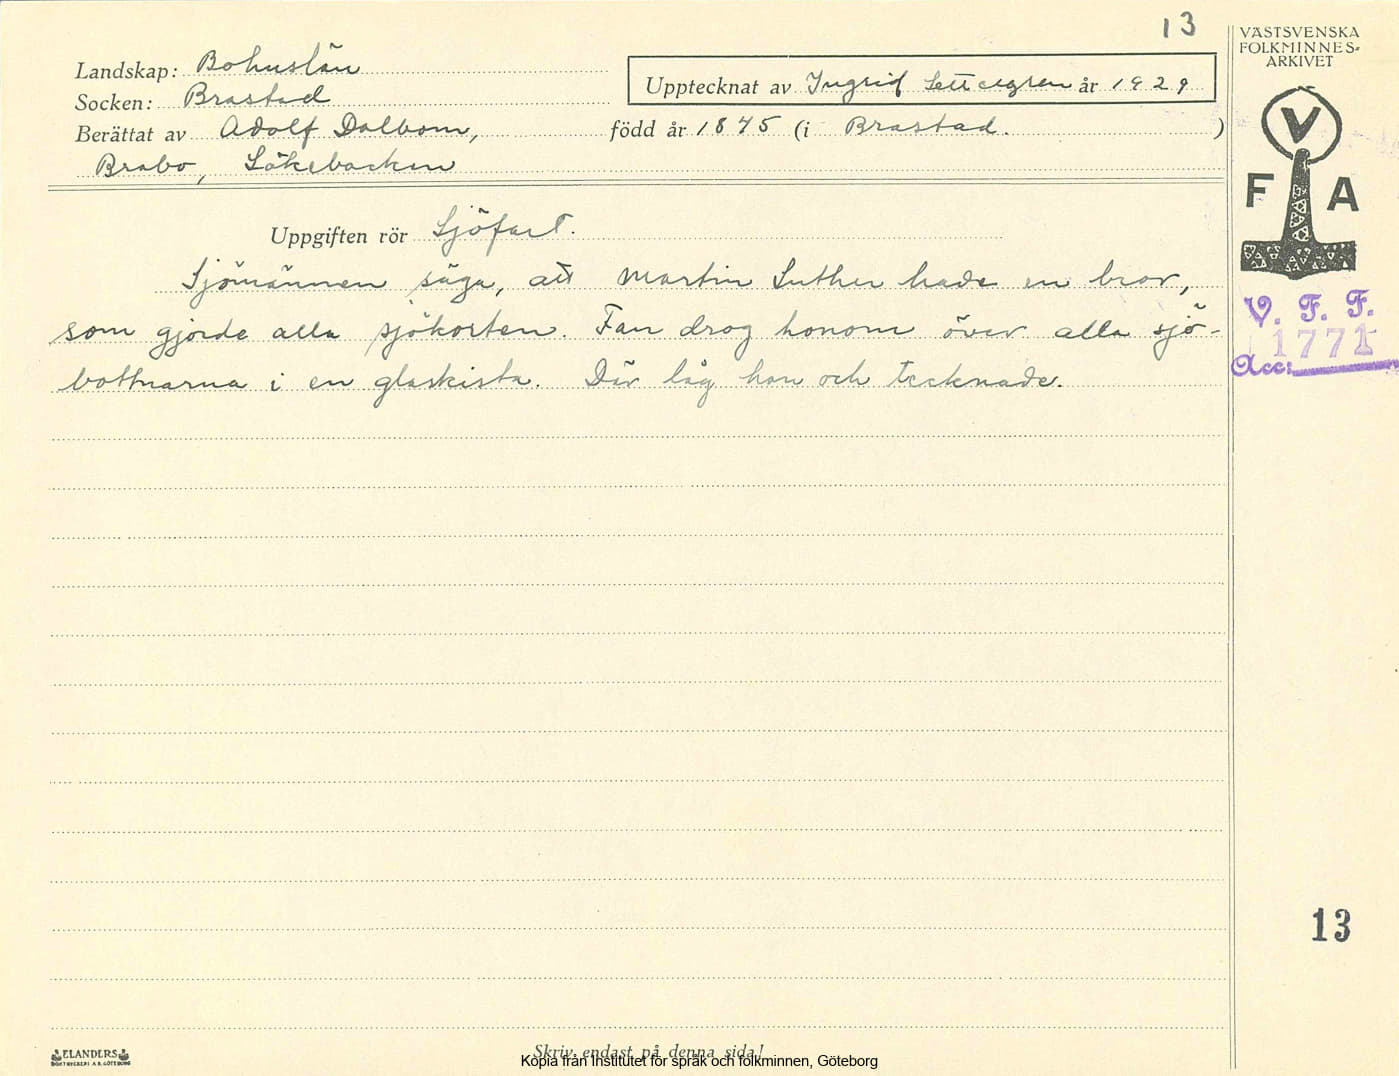 13
VÄSTSVENSKA
FOLKMINNES-
ARKIVET
Landskap: Bohuslän
Upptecknat av Ingrid Settergren år 1929
Socken: Brastad
Berättat av Adolf Dalbom, född år 1875 (i Brastad. )
Brabo, Lökebacken
V
F A
Uppgiften rör Sjöfart.
Sjömännen säga, att Martin Luther hade en bror,
som gjorde alla sjökorten. Fan drog honom över alla sjö-
bottnarna i en glaskista. Där låg han och tecknade.
V. F. F.
1771
Acc:
13
ELANDERS
BOKTRYCKERI A.B. GÖTEBORG
Skriv endast på denna sida!
Kopia från Institutet för språk och folkminnen, Göteborg